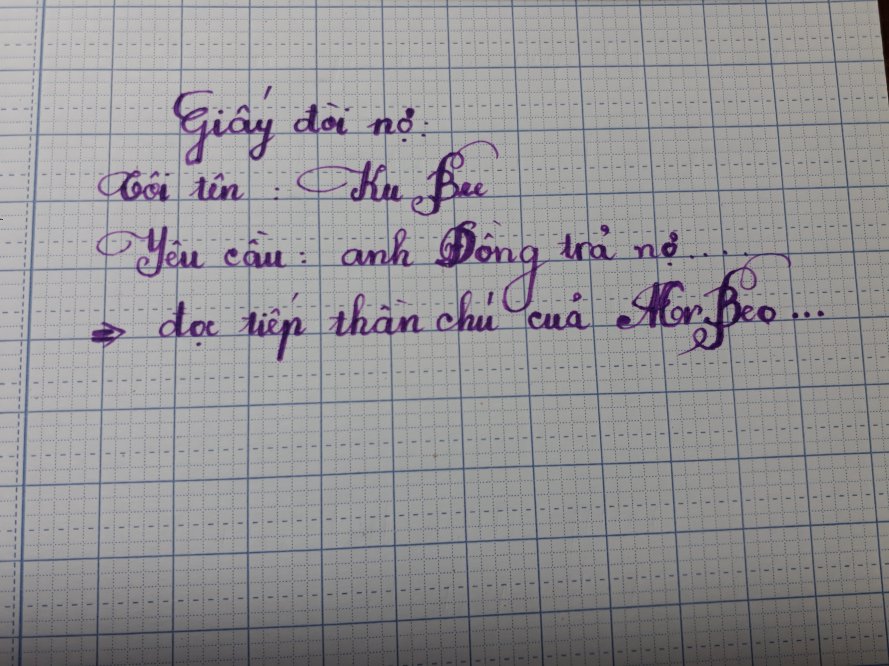 Giấy đòi nợ:
Tôi tên : Ku Bee
Yêu cầu: anh Đồng trả nợ....
⇒ đọc tiếp thần chú cuả Mor Beo...